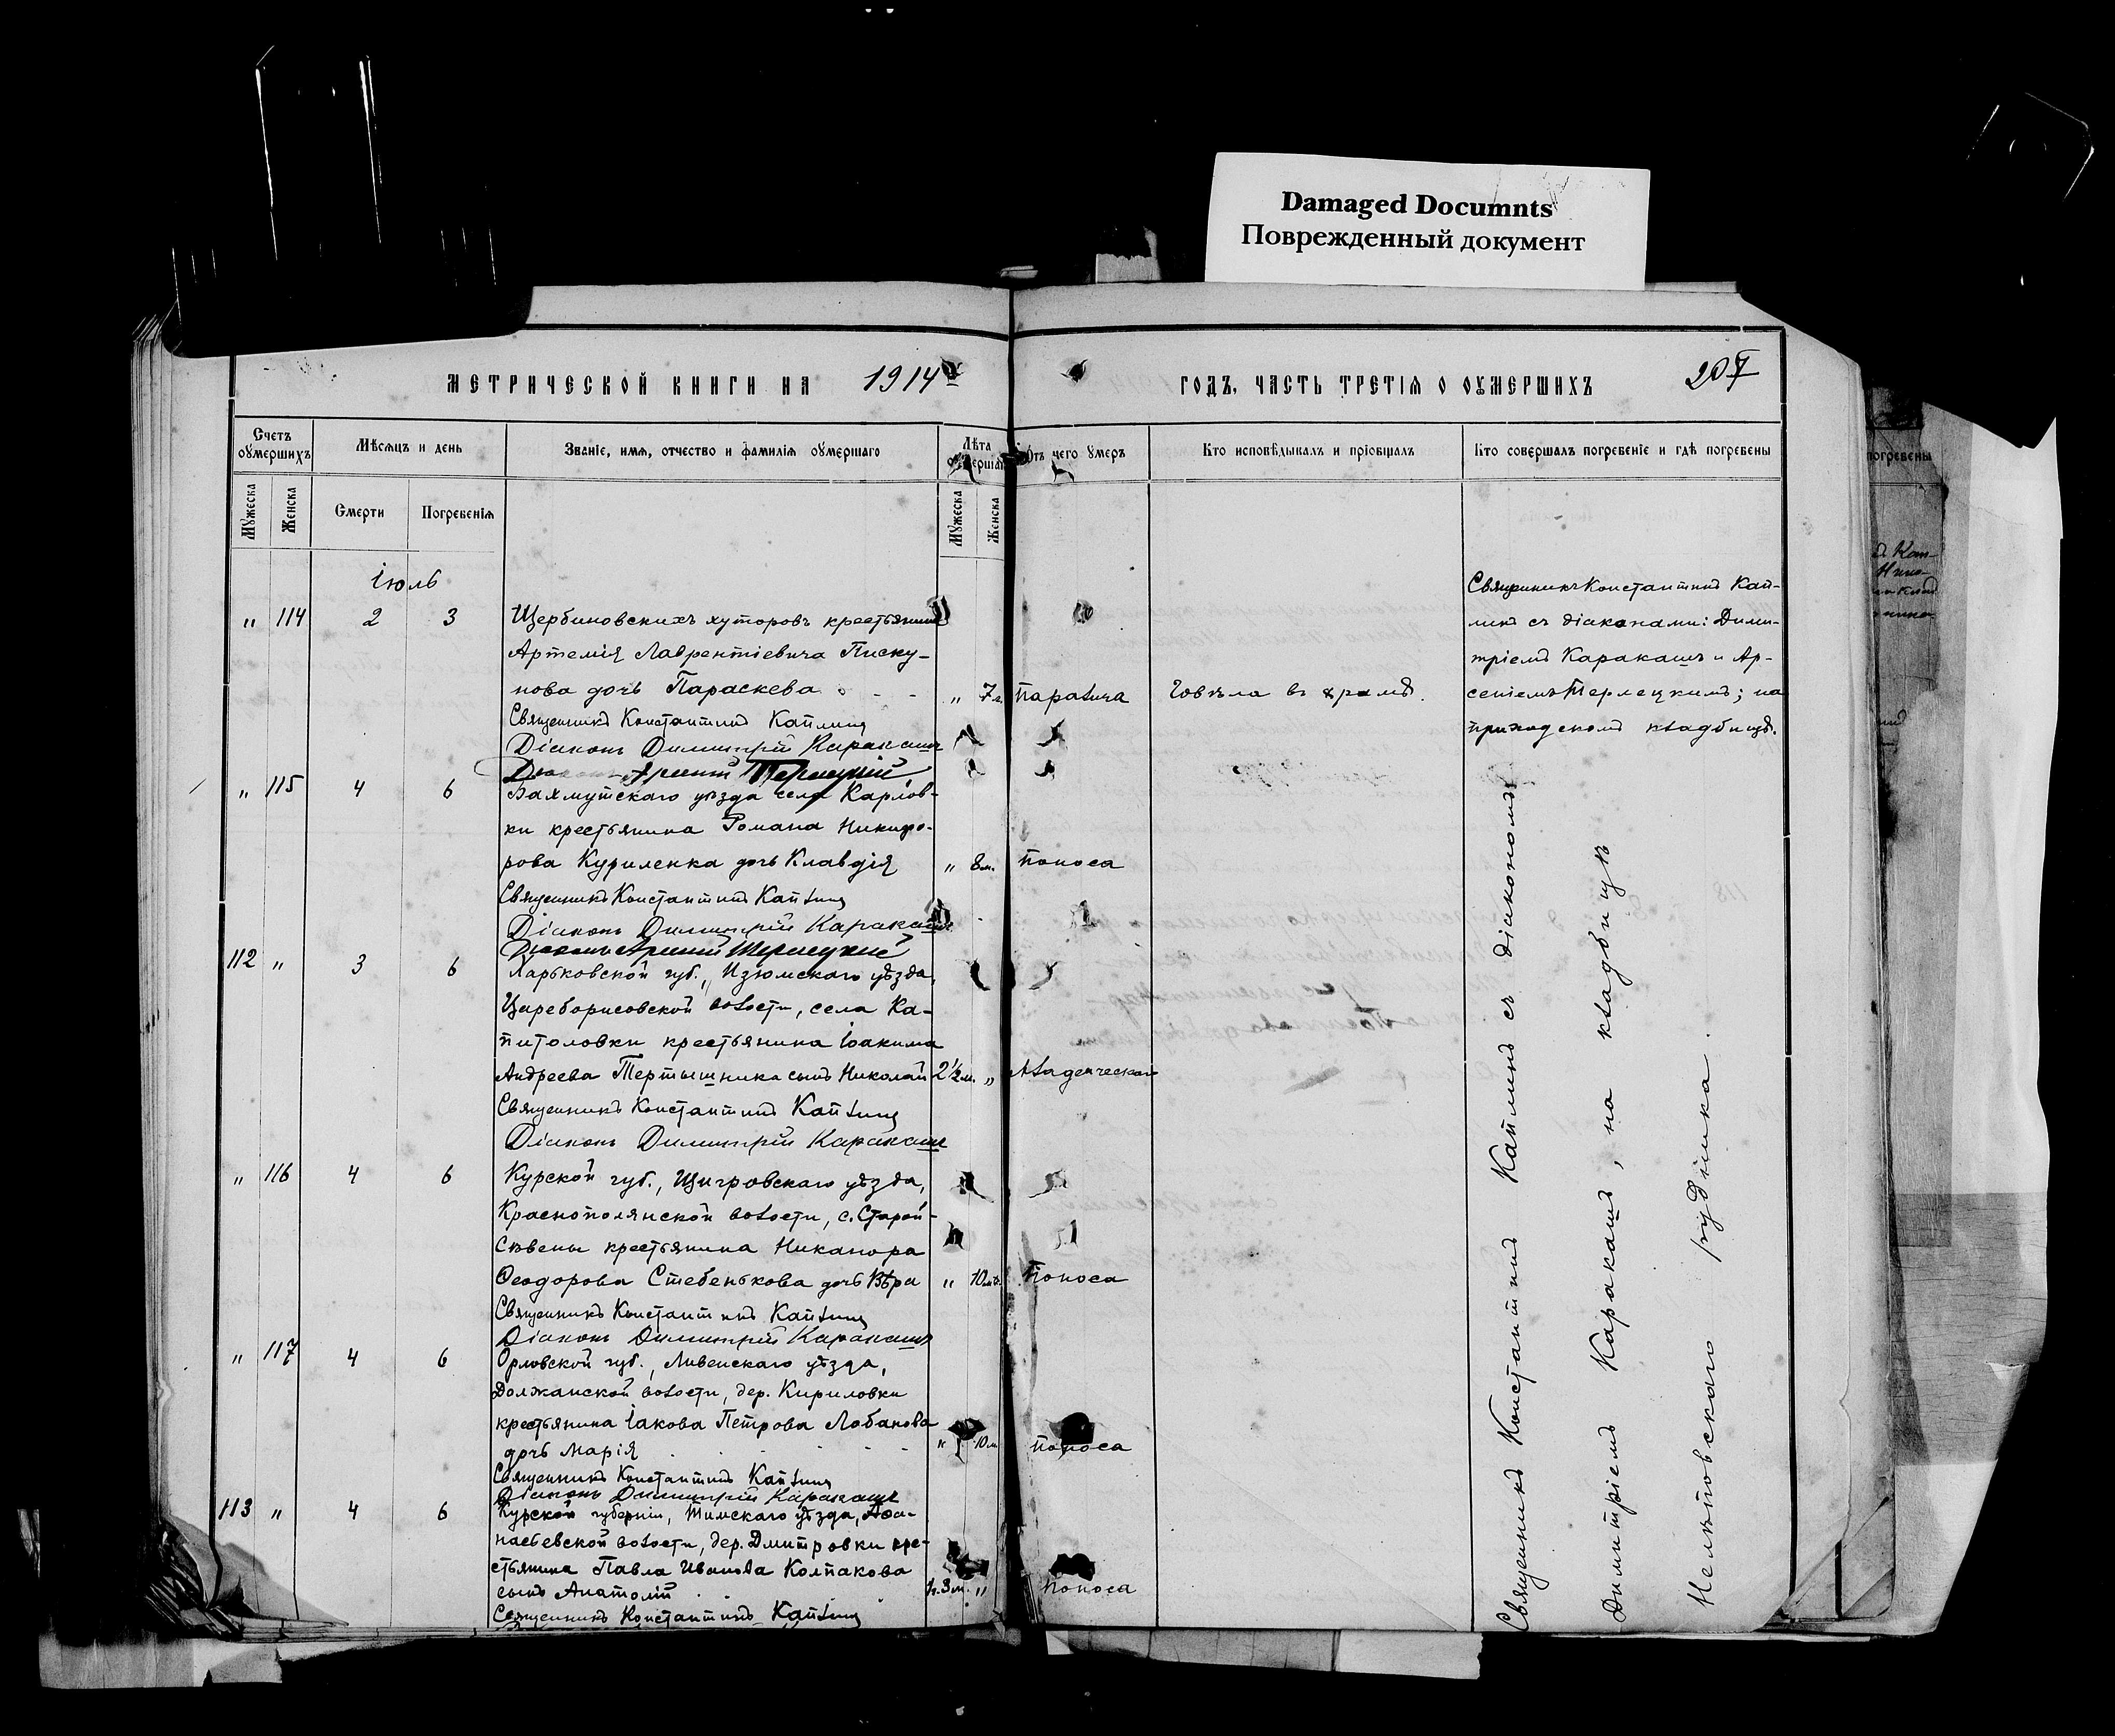 Damaged Documnts
Поврежденный документ
МЕТРИЧЕСКОЙ КНИГИ НА 1914 ГОДЪ, ЧАСТЬ ТРЕТІЯ О ОУМЕРШИХЪ
207
Счетъ оумершихъ
Мѣсяцъ и день
Званіе, имя, отчество и фамилія оумершаго
Лѣта
Отъ чего умеръ
Кто исповѣдывалъ и пріобщалъ
Кто совершалъ погребеніе и гдѣ погребены
Мужеска
Женска
Смерти
Погребенія
Мужеска
Женска
погребены
Іюль
„ 114 2 3 Щербиновскихъ хуторовъ крестьянина
Артемія Лаврентіевича Писку-
нова дочь Параскева - - „ 7 л. паралича Говѣла въ храмѣ.
Священникъ Константинъ Каплинъ
Діаконъ Димитрій Каракашъ
Діаконъ Арсеній Терлецкій
Священникъ Константинъ Кап-
линъ съ діаконами: Дими-
тріемъ Каракашъ и Ар-
сеніемъ Терлецкимъ; на
приходскомъ кладбищѣ.
„ 115 4 6 Бахмутскаго уѣзда села Карлов-
ки крестьянина Романа Никифо-
рова Куриленка дочь Клавдія „ 8 м. поноса
Священникъ Константинъ Каплинъ
Діаконъ Димитрій Каракашъ
Діаконъ Арсеній Терлецкій
112 „ 3 6 Харьковской губ., Изюмскаго уѣзда,
Цареборисовской волости, села Ка-
питоловки крестьянина Іоакима
Андреева Тертышника сынъ Николай 2½ м. „ Младенческой
Священникъ Константинъ Каплинъ
Діаконъ Димитрій Каракашъ
„ 116 4 6 Курской губ., Щигровскаго уѣзда,
Краснополянской волости, с. Старой-
Савены крестьянина Никанора
Ѳеодорова Стебенькова дочь Вѣра „ 10 м. поноса
Священникъ Константинъ Каплинъ
Діаконъ Димитрій Каракашъ
„ 117 4 6 Орловской губ., Ливенскаго уѣзда,
Должанской волости, дер. Кириловки
крестьянина Іакова Петрова Лобанова
дочь Марія „ 10 м. поноса
Священникъ Константинъ Каплинъ
Діаконъ Димитрій Каракашъ
113 „ 4 6 Курской губерніи, Тимскаго уѣзда, Аѳа-
насьевской волости, дер. Дмитровки кре-
стьянина Павла Иванова Колпакова
сынъ Анатолій 1 г. 3 м. „ поноса
Священникъ Константинъ Каплинъ
Священникъ Константинъ Каплинъ съ діакономъ
Димитріемъ Каракашъ, на кладбищѣ
Нелѣповскаго рудника.